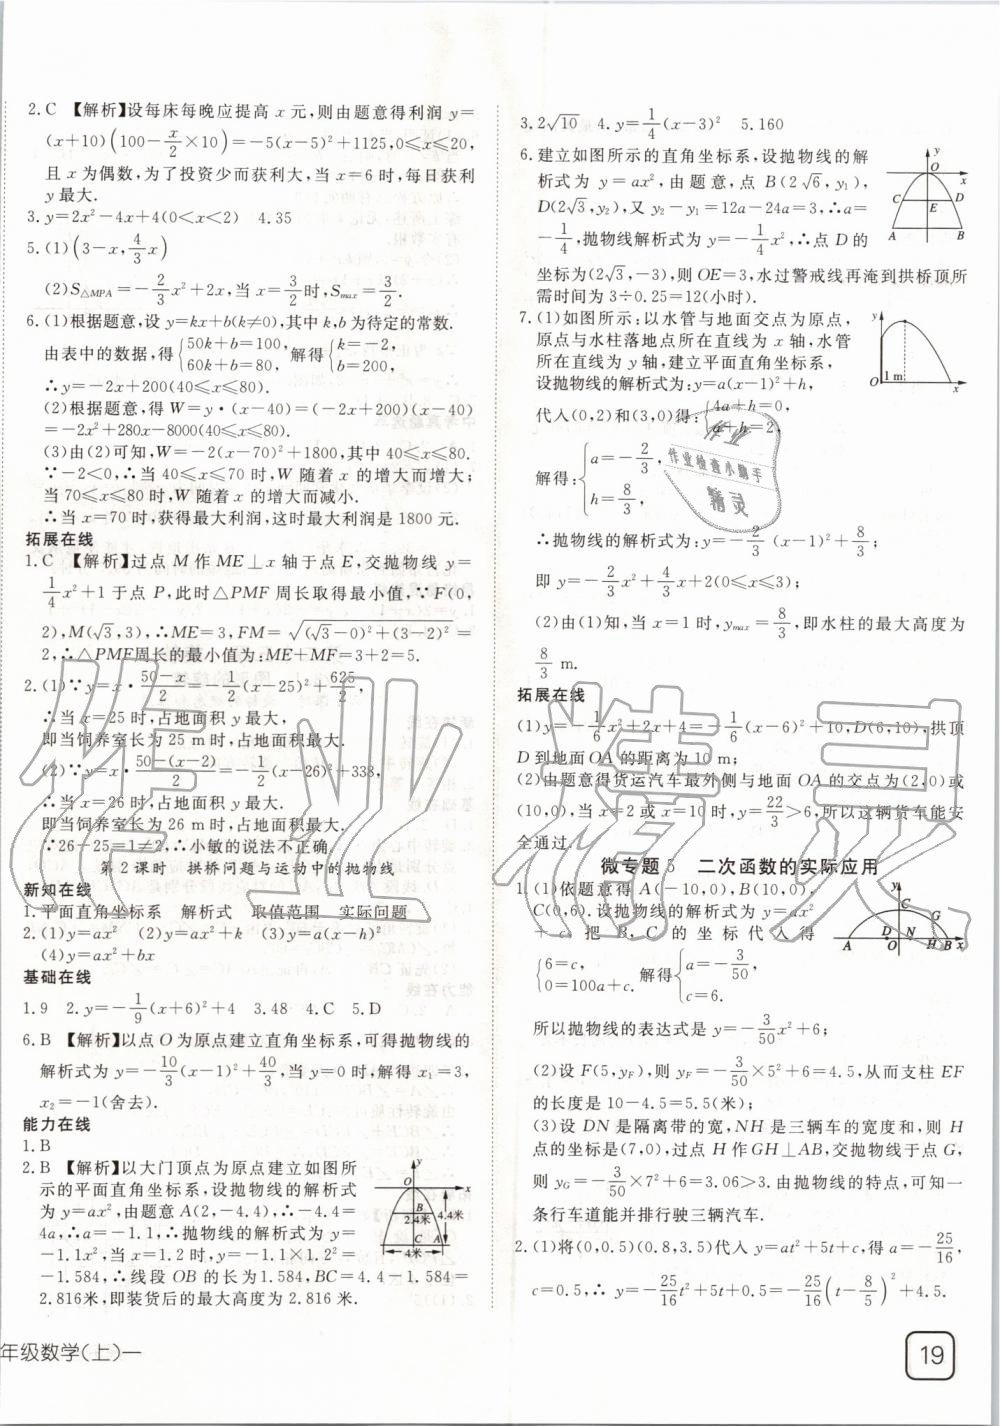 2.C 【解析】设每床每晚应提高 x 元,则由题意得利润 y=
(x+10)(100-x/2×10)=-5(x-5)²+1125,0⩽x⩽20,
且 x 为偶数,为了投资少而获利大,当 x=6 时,每日获利
y 最大.
3.y=2x²-4x+4(0<x<2)  4.35
5.(1)(3-x,4/3x)
(2)S△MPA=-2/3x²+2x,当 x=3/2时,Smax=3/2.
6.(1)根据题意,设 y=kx+b(k≠0),其中 k,b 为待定的常数.
由表中的数据,得{50k+b=100, 60k+b=80, 解得{k=-2, b=200,
∴y=-2x+200(40⩽x⩽80).
(2)根据题意,得 W=y·(x-40)=(-2x+200)(x-40)
=-2x²+280x-8000(40⩽x⩽80).
(3)由(2)可知,W=-2(x-70)²+1800,其中 40⩽x⩽80.
∵-2<0,∴当 40⩽x⩽70 时,W 随着 x 的增大而增大;
当 70⩽x⩽80时,W 随着 x 的增大而减小.
∴当 x=70 时,获得最大利润,这时最大利润是 1800 元.
拓展在线
1.C 【解析】过点 M 作 ME⊥x 轴于点 E,交抛物线 y=
1/4x²+1 于点 P,此时△PMF 周长取得最小值,∵F(0,
2),M(√3,3),∴ME=3,FM=√((√3-0)²+(3-2)²)=
2,∴△PMF周长的最小值为:ME+MF=3+2=5.
2.(1)∵y=x·(50-x)/2=-1/2(x-25)²+625/2,
∴当 x=25 时,占地面积 y 最大,
即当饲养室长为 25 m 时,占地面积最大.
(2)∵y=x·(50-(x-2))/2=-1/2(x-26)²+338,
∴当 x=26 时,占地面积 y 最大,
即当饲养室长为 26 m 时,占地面积最大.
∵26-25=1≠2,∴小敏的说法不正确.
第 2 课时 拱桥问题与运动中的抛物线
新知在线
1.平面直角坐标系 解析式 取值范围 实际问题
2.(1)y=ax² (2)y=ax²+k (3)y=a(x-h)²
(4)y=ax²+bx
基础在线
1.9 2.y=-1/9(x+6)²+4 3.48 4.C 5.D
6.B 【解析】以点 O 为原点建立直角坐标系,可得抛物线的
解析式为 y=-10/3(x-1)²+40/3,当 y=0 时,解得 x₁=3,
x₂=-1(舍去).
能力在线
1.B
2.B 【解析】以大门顶点为原点建立如图所
示的平面直角坐标系,设抛物线的解析式
为 y=ax²,由题意 A(2,-4.4),∴-4.4=
4a,∴a=-1.1,∴抛物线的解析式为 y=
-1.1x²,当 x=1.2 时,y=-1.1×1.2²=
-1.584,∴线段 OB 的长为 1.584,BC=4.4-1.584=
2.816米,即装货后的最大高度为 2.816 米.
y
O
x
B
2.4米
4.4米
C A
4米
年级数学(上)—
3.2√10 4.y=1/4(x-3)² 5.160
6.建立如图所示的直角坐标系,设抛物线的解
析式为 y=ax²,由题意,点 B(2√6,y₁),
D(2√3,y₂),又 y₂-y₁=12a-24a=3,∴a=
-1/4,抛物线解析式为 y=-1/4x²,∴点 D 的
坐标为(2√3,-3),则 OE=3,水过警戒线再淹到拱桥顶所
需时间为 3÷0.25=12(小时).
y
O
x
C
D
E
A
B
7.(1)如图所示:以水管与地面交点为原点,
原点与水柱落地点所在直线为 x 轴,水管
所在直线为 y 轴,建立平面直角坐标系,
设抛物线的解析式为:y=a(x-1)²+h,
代入(0,2)和(3,0)得:{4a+h=0, a+h=2,
解得:{a=-2/3, h=8/3,
∴抛物线的解析式为:y=-2/3(x-1)²+8/3;
即 y=-2/3x²+4/3x+2(0⩽x⩽3);
(2)由(1)知,当 x=1 时,ymax=8/3,即水柱的最大高度为
8/3 m.
y
O
1 m
x
拓展在线
(1)y=-1/6x²+2x+4=-1/6(x-6)²+10,D(6,10),拱顶
D到地面 OA 的距离为 10 m;
(2)由题意得货运汽车最外侧与地面 OA 的交点为(2,0)或
(10,0),当 x=2 或 x=10 时,y=22/3>6,所以这辆货车能安
全通过.
微专题 5 二次函数的实际应用
1.(1)依题意得 A(-10,0),B(10,0),
C(0,6).设抛物线的解析式为 y=ax²
+c,把 B,C 的坐标代入得
{6=c, 0=100a+c. 解得{a=-3/50, c=6.
y
C
G
A
D
O
N
H
B
x
所以抛物线的表达式是 y=-3/50x²+6;
(2)设 F(5,yF),则 yF=-3/50×5²+6=4.5,从而支柱 EF
的长度是 10-4.5=5.5(米);
(3)设 DN 是隔离带的宽,NH 是三辆车的宽度和,则 H
点的坐标是(7,0),过点 H 作 GH⊥AB,交抛物线于点 G,
则 yG=-3/50×7²+6=3.06>3.由抛物线的特点,可知一
条行车道能并排行驶三辆汽车.
2.(1)将(0,0.5)(0.8,3.5)代入 y=at²+5t+c,得 a=-25/16,
c=0.5,∴ y=-25/16t²+5t+0.5=-25/16(t-8/5)²+4.5.
19
作业精灵
作业
作业检查小助手
精灵